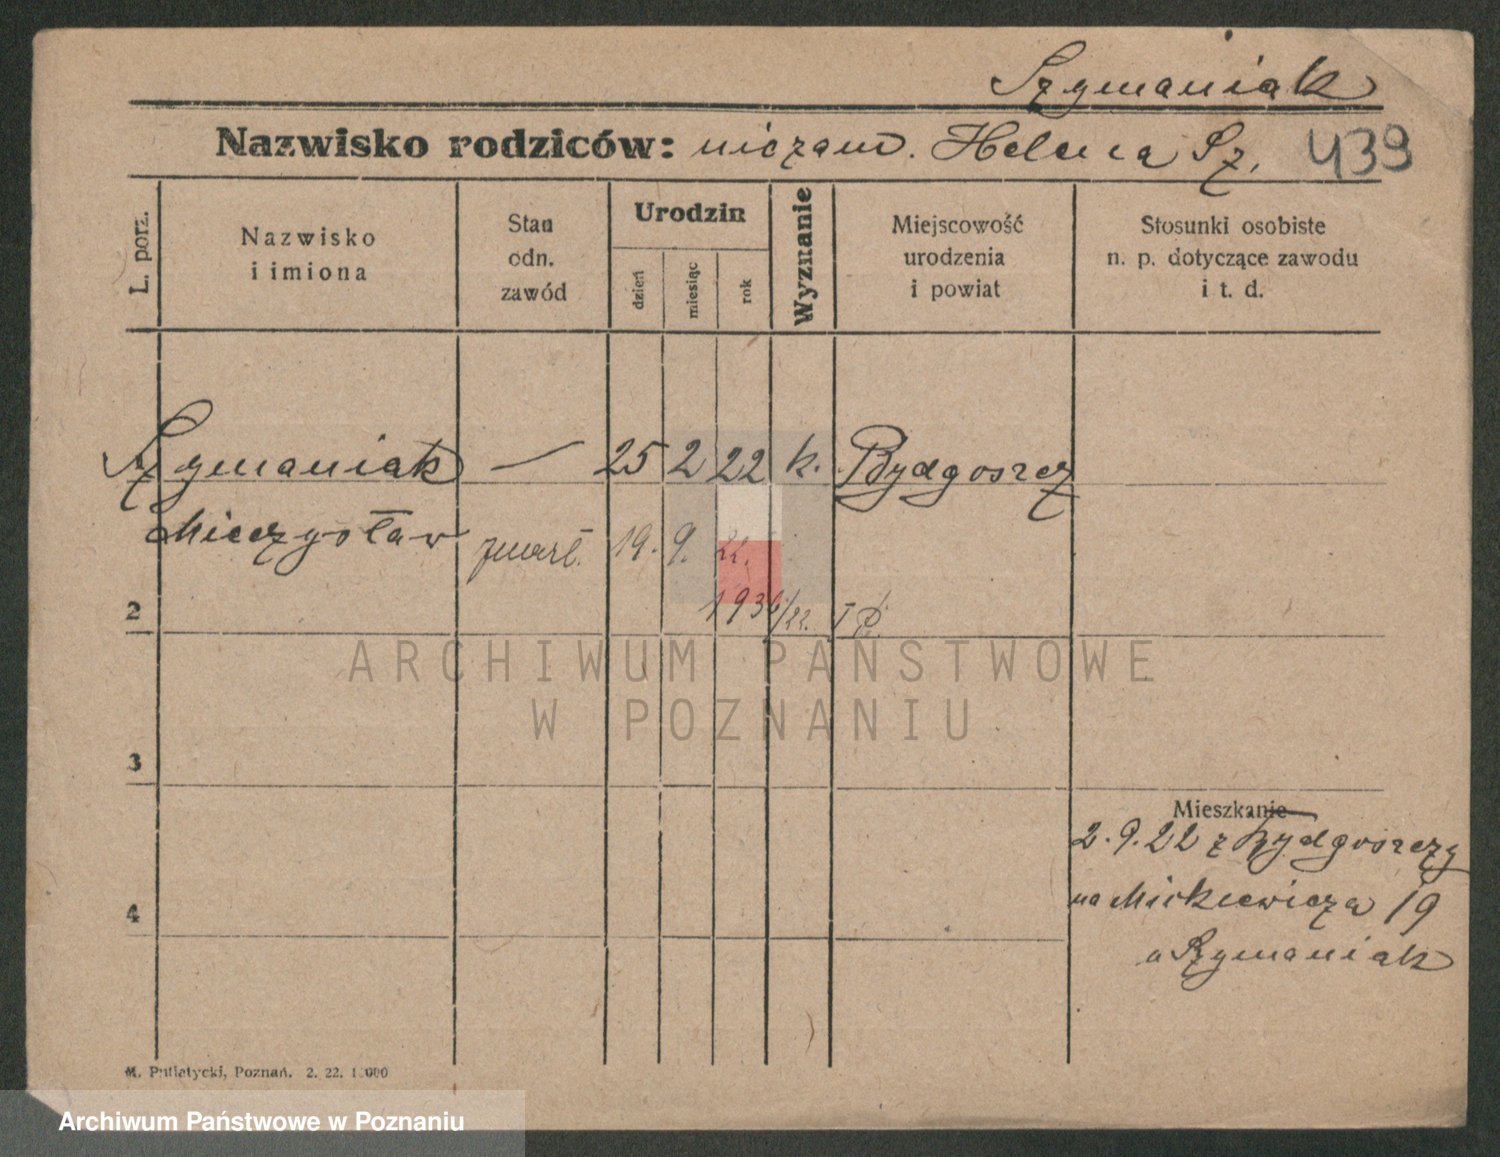 Szymaniak
Nazwisko rodziców: niezam. Helena Sz. 439
L. porz.
Nazwisko
i imiona
Stan
odn.
zawód
Urodzin
dzień
miesiąc
rok
Wyznanie
Miejscowość
urodzenia
i powiat
Stosunki osobiste
n. p. dotyczące zawodu
i t. d.
Szymaniak — 25 2 22 k. Bydgoszcz
Mieczysław zmarł. 19. 9. 22.
2 193 /22.
ARCHIWUM PAŃSTWOWE
W POZNANIU
3
Mieszkanie
2.9.22 z Bydgoszczy
na Mickiewicza 19
u Szymaniak
4
M. Putiatycki, Poznań. 2. 22. 1 000
Archiwum Państwowe w Poznaniu